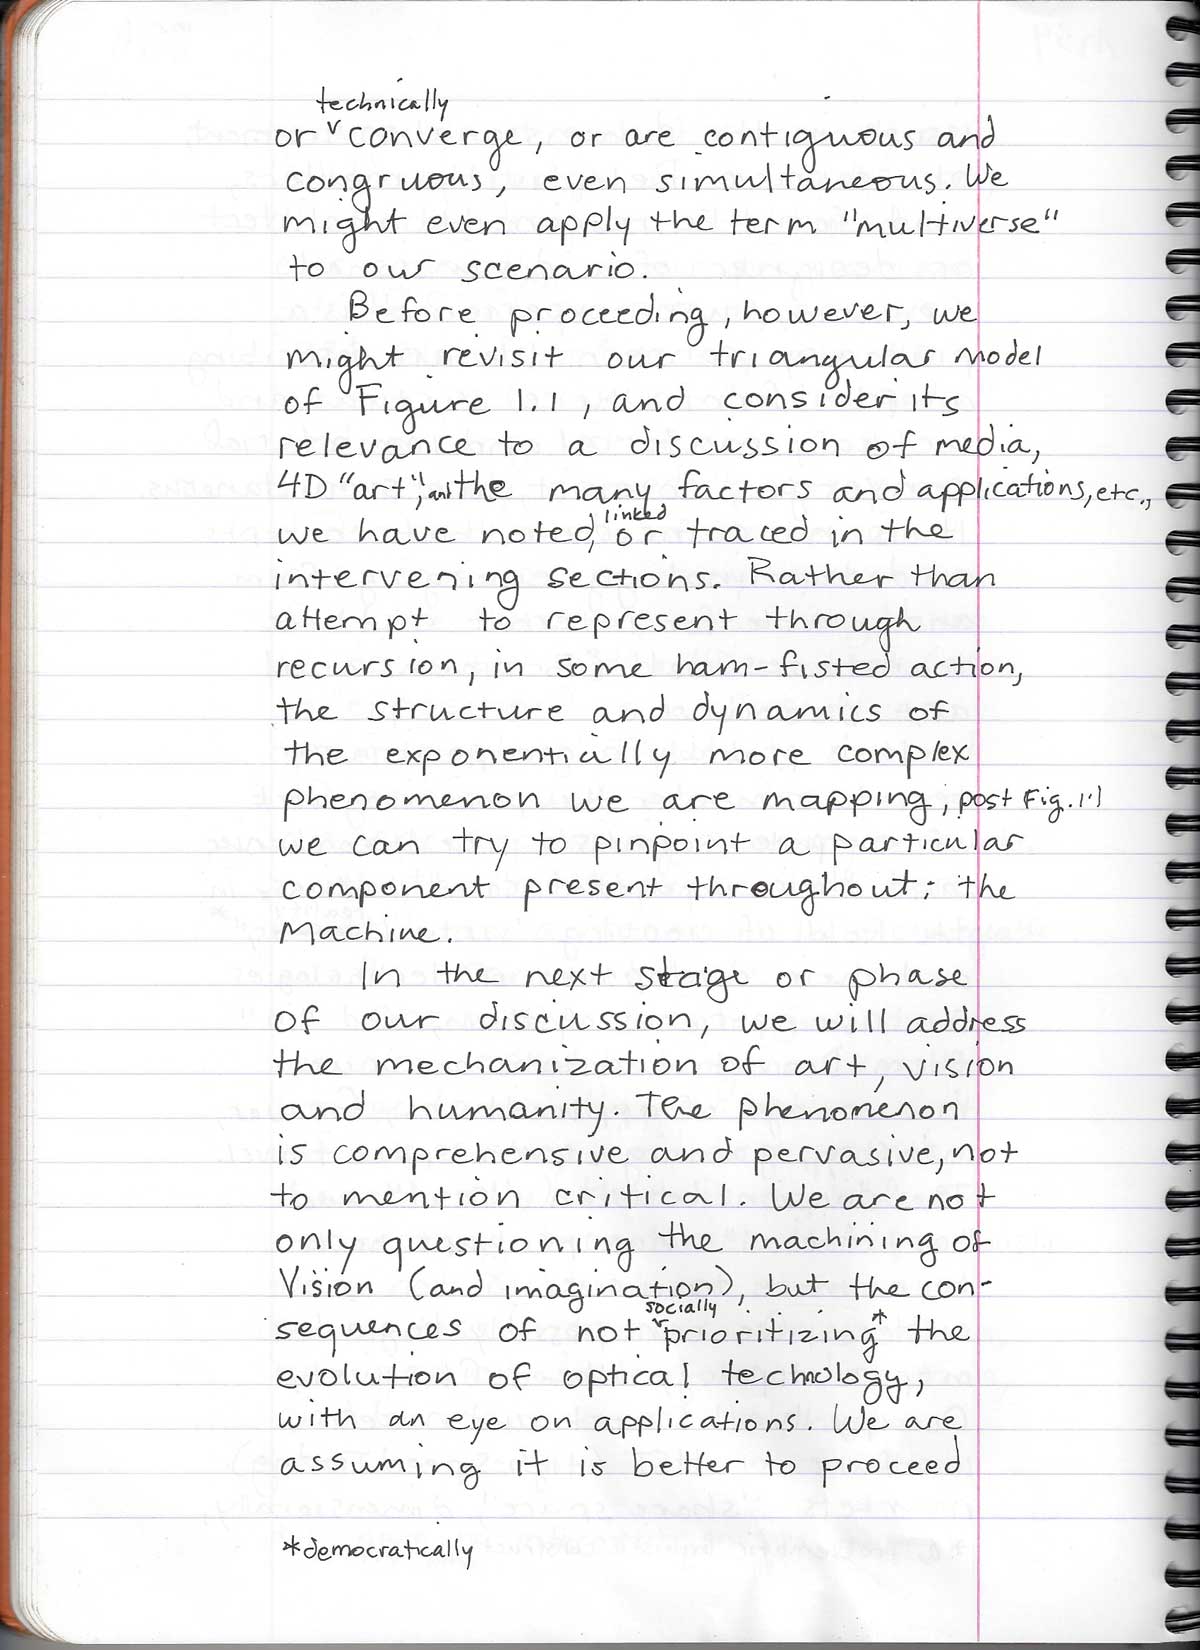 technically
or ˅ converge, or are contiguous and
congruous, even simultaneous. We
might even apply the term "multiverse"
to our scenario.
Before proceeding, however, we
might revisit our triangular model
of Figure 1.1, and consider its
relevance to a discussion of media,
4D "art", and the many factors and applications, etc.,
linked
we have noted, or traced in the
intervening sections. Rather than
attempt to represent through
recursion, in some ham-fisted action,
the structure and dynamics of
the exponentially more complex
phenomenon we are mapping, post Fig. 1.1
we can try to pinpoint a particular
component present throughout: the
Machine.
In the next stage or phase
of our discussion, we will address
the mechanization of art, vision
and humanity. The phenomenon
is comprehensive and pervasive, not
to mention critical. We are not
only questioning the machining of
Vision (and imagination), but the con-
socially
sequences of not ˅ prioritizing* the
evolution of optical technology,
with an eye on applications. We are
assuming it is better to proceed
*democratically